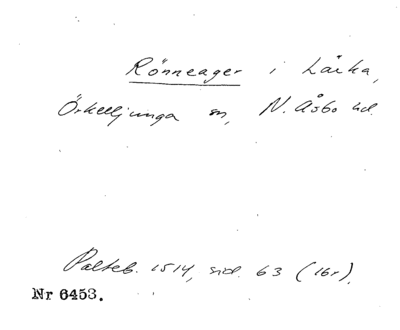 Rönneager i Lärka,
Örkelljunga sn, N. Åsbo hd.
Palteb. 1514, sid. 63 (16r).
Nr 6453.